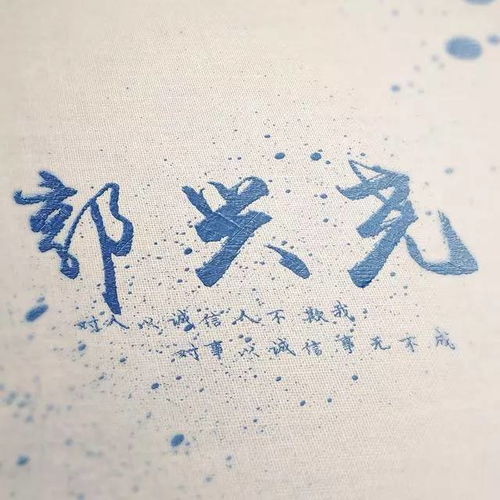 郭兴
对人以诚信人不欺我
对事以诚信事无不成